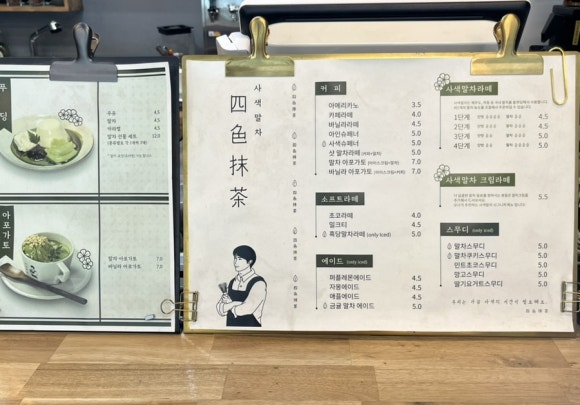 푸딩
우유 4.5
말차 4.5
아포가토
말차 아포가토 7.0
바닐라 아포가토 7.0
사색말차
四色抹茶
커 피
아메리카노 3.5
카페라떼 4.0
바닐라라떼 4.5
아인슈페너 5.0
사색슈페너 5.0
샷 말차라떼 (커피+말차) 5.0
말차 아포가토 (아이스크림+말차) 7.0
바닐라 아포가토 (아이스크림+커피) 7.0
소프트라떼
초코라떼 4.0
밀크티 4.5
흑당말차라떼 (only iced) 5.0
에이드 (only iced)
퍼플레몬에이드 4.5
자몽에이드 4.5
애플에이드 4.5
금귤 말차 에이드 5.0
사색말차라떼
1단계 4.5
2단계 4.5
3단계 5.0
4단계 5.0
사색말차 크림라떼
5.5
스무디 (only iced)
말차스무디 5.0
말차쿠키스무디 5.0
민트초코스무디 5.0
망고스무디 5.0
딸기요거트스무디 5.0
四色抹茶